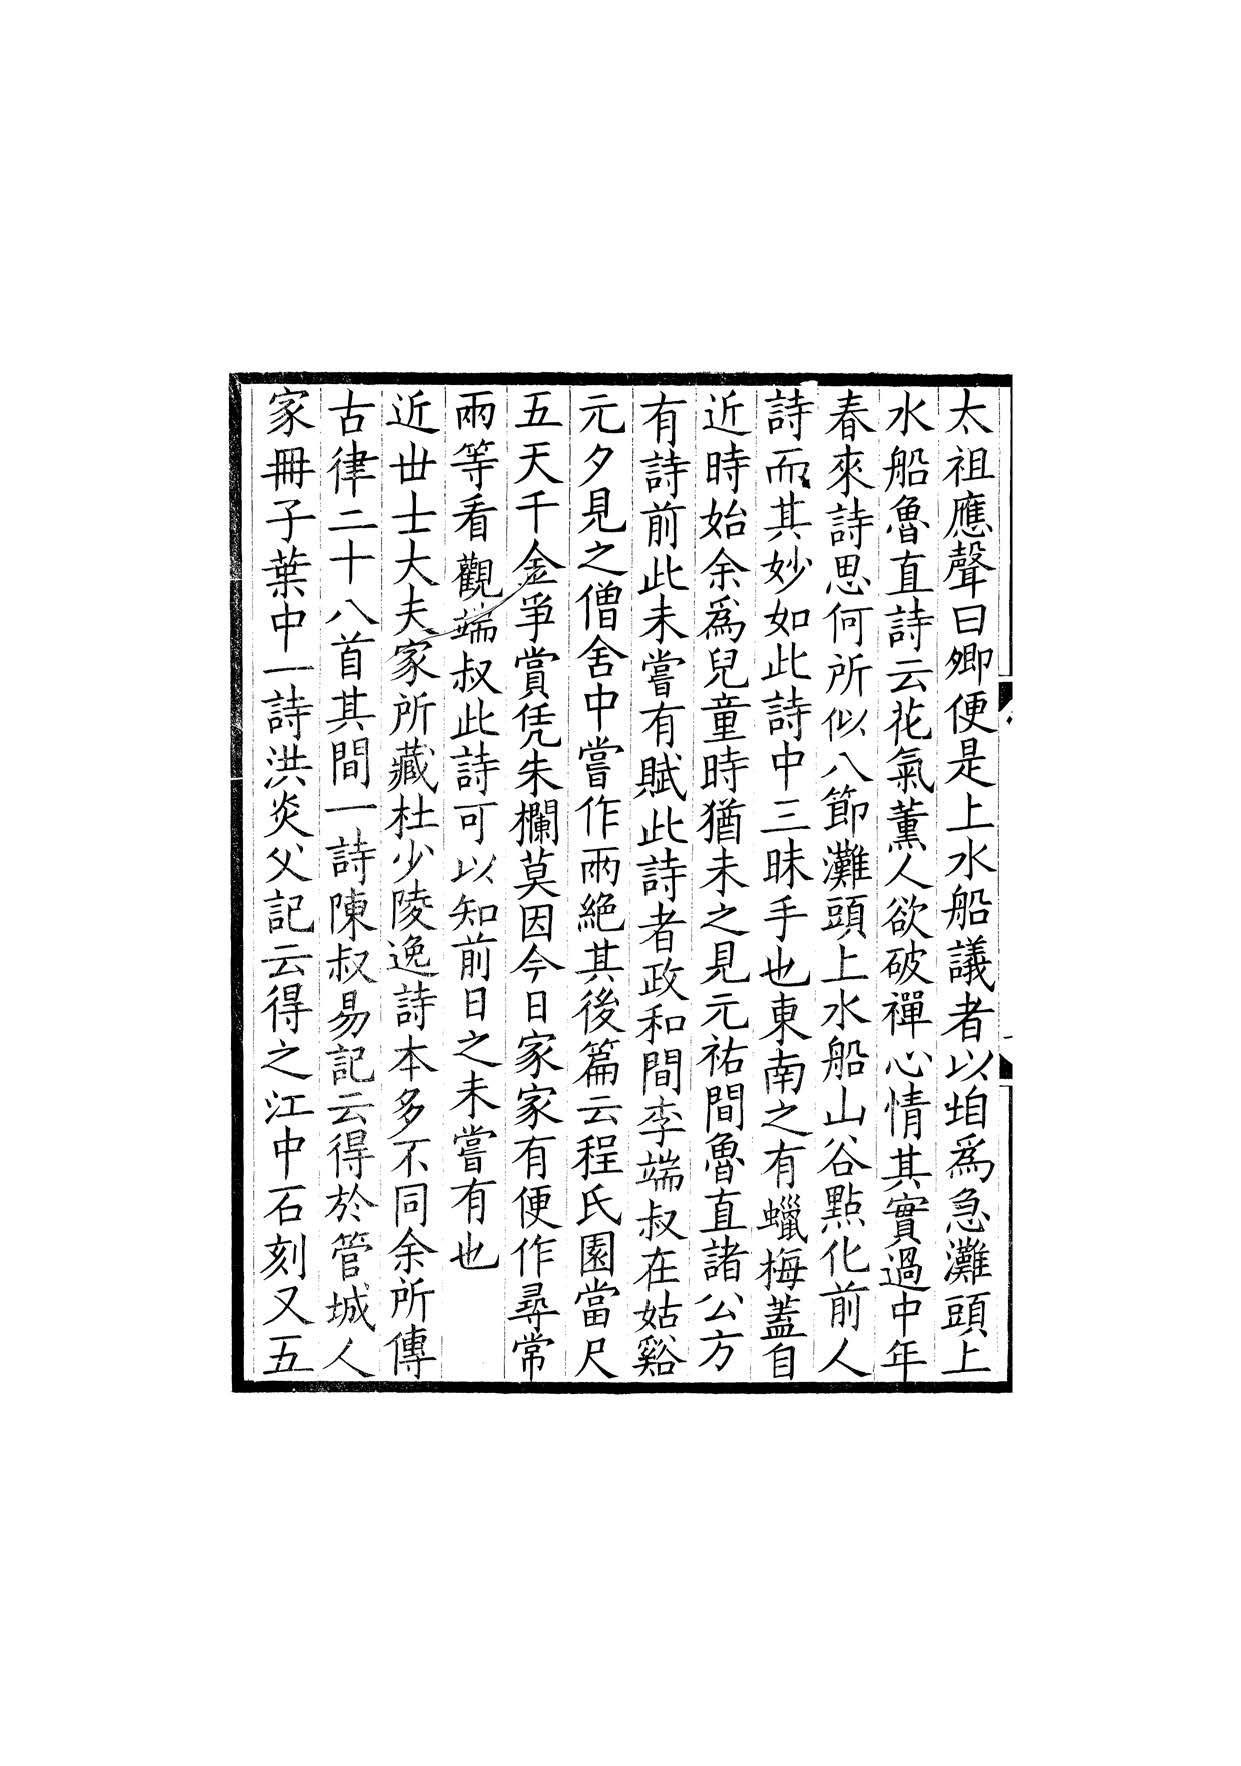 太祖應聲曰卿便是上水船議者以㛿爲急灘頭上
水船魯直詩云花氣薰人欲破禪心情其實過中年
春來詩思何所似八節灘頭上水船山谷點化前人
詩而其妙如此詩中三昧手也東南之有蠟梅蓋自
近時始余爲兒童時猶未之見元祐間魯直諸公方
有詩前此未嘗有賦此詩者政和間李端叔在姑谿
元夕見之僧舍中嘗作兩絕其後篇云程氏園當尺
五天千金爭賞凭朱欄莫因今日家家有便作尋常
兩等看觀端叔此詩可以知前日之未嘗有也
近世士大夫家所藏杜少陵逸詩本多不同余所傳
古律二十八首其間一詩陳叔易記云得於管城人
家冊子葉中一詩洪炎父記云得之江中石刻又五